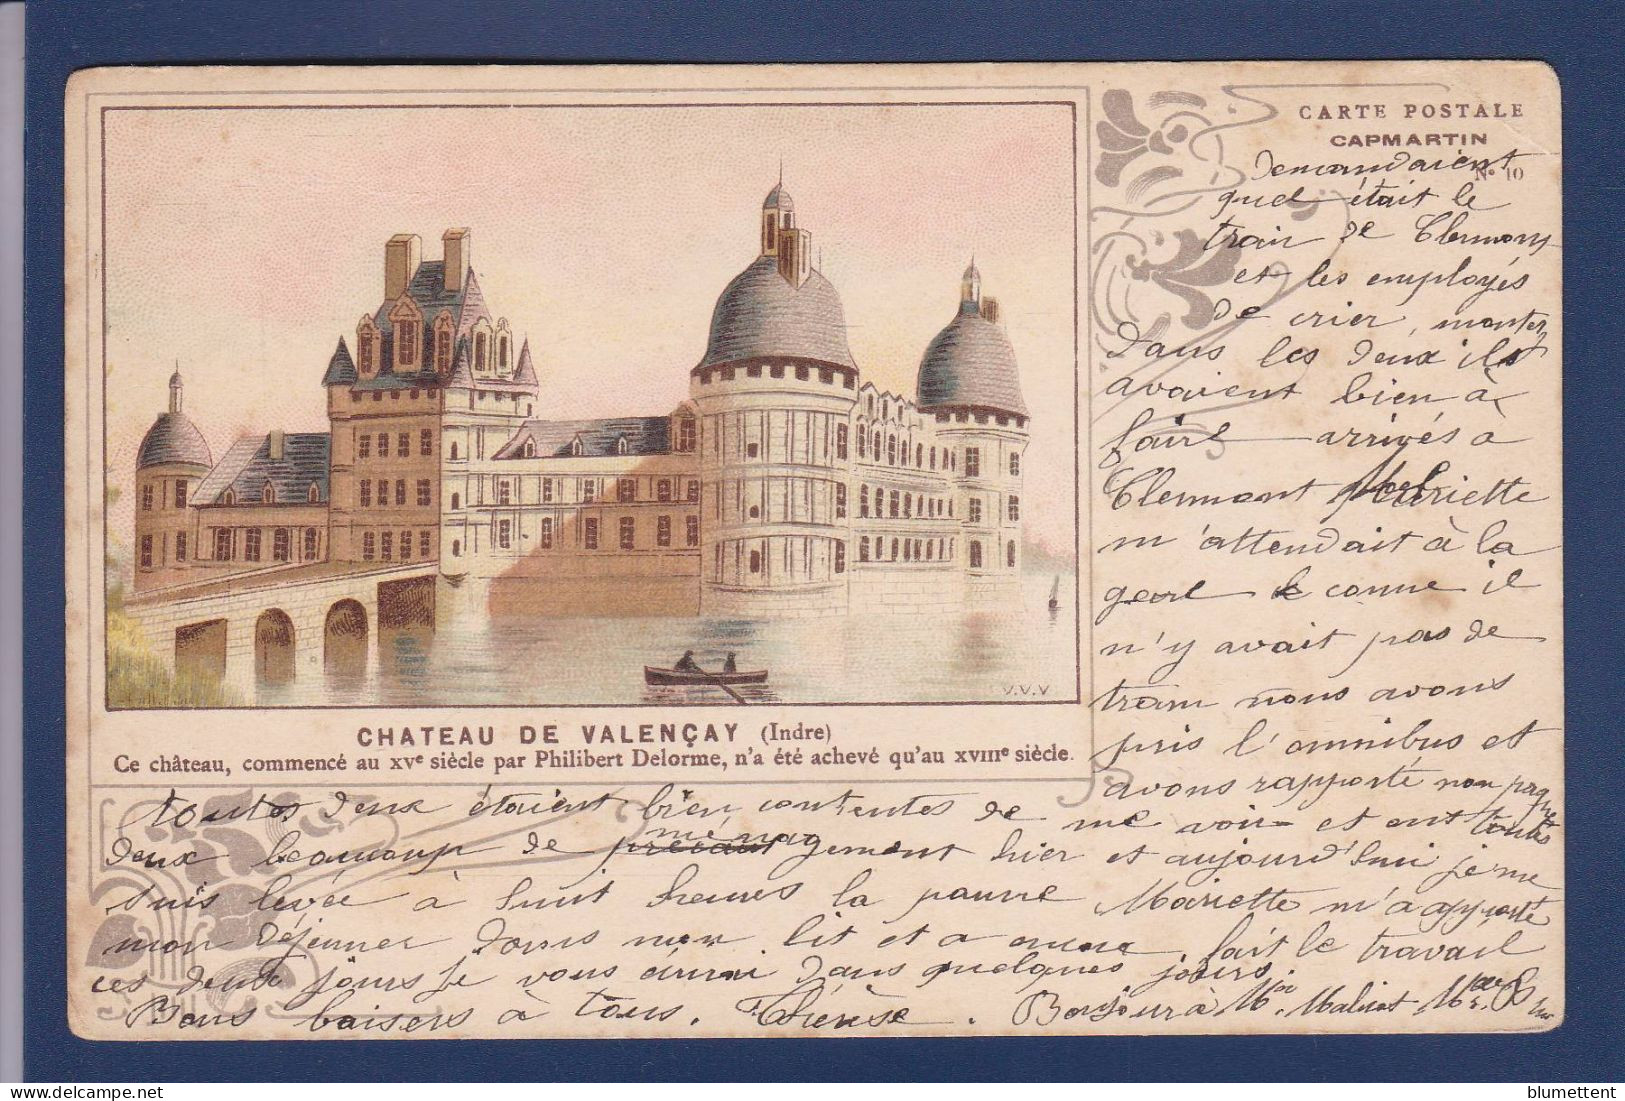 CARTE POSTALE
CAPMARTIN
N° 10
demandaient
quel était le
train de Clermont
et les employés
de crier, montez
dans les deux ils
avaient bien à
faire arrivés à
Clermont Mariette
m'attendait à la
gare comme il
n'y avait pas de
tram nous avons
pris l'omnibus et
avons rapporté mon
V.V.V
CHATEAU DE VALENÇAY (Indre)
Ce château, commencé au XVe siècle par Philibert Delorme, n'a été achevé qu'au XVIIIe siècle.
toutes deux étaient bien contentes de me voir et ont toutes
deux beaucoup de ménagement hier et aujourd'hui je me
suis levée à huit heures la pauvre Mariette m'a apporté
mon déjeuner dans mon lit et a encore fait le travail
ces deux jours je vous écrirai dans quelques jours.
Bons baisers à tous. Thérèse. Bonjour à
blumettent